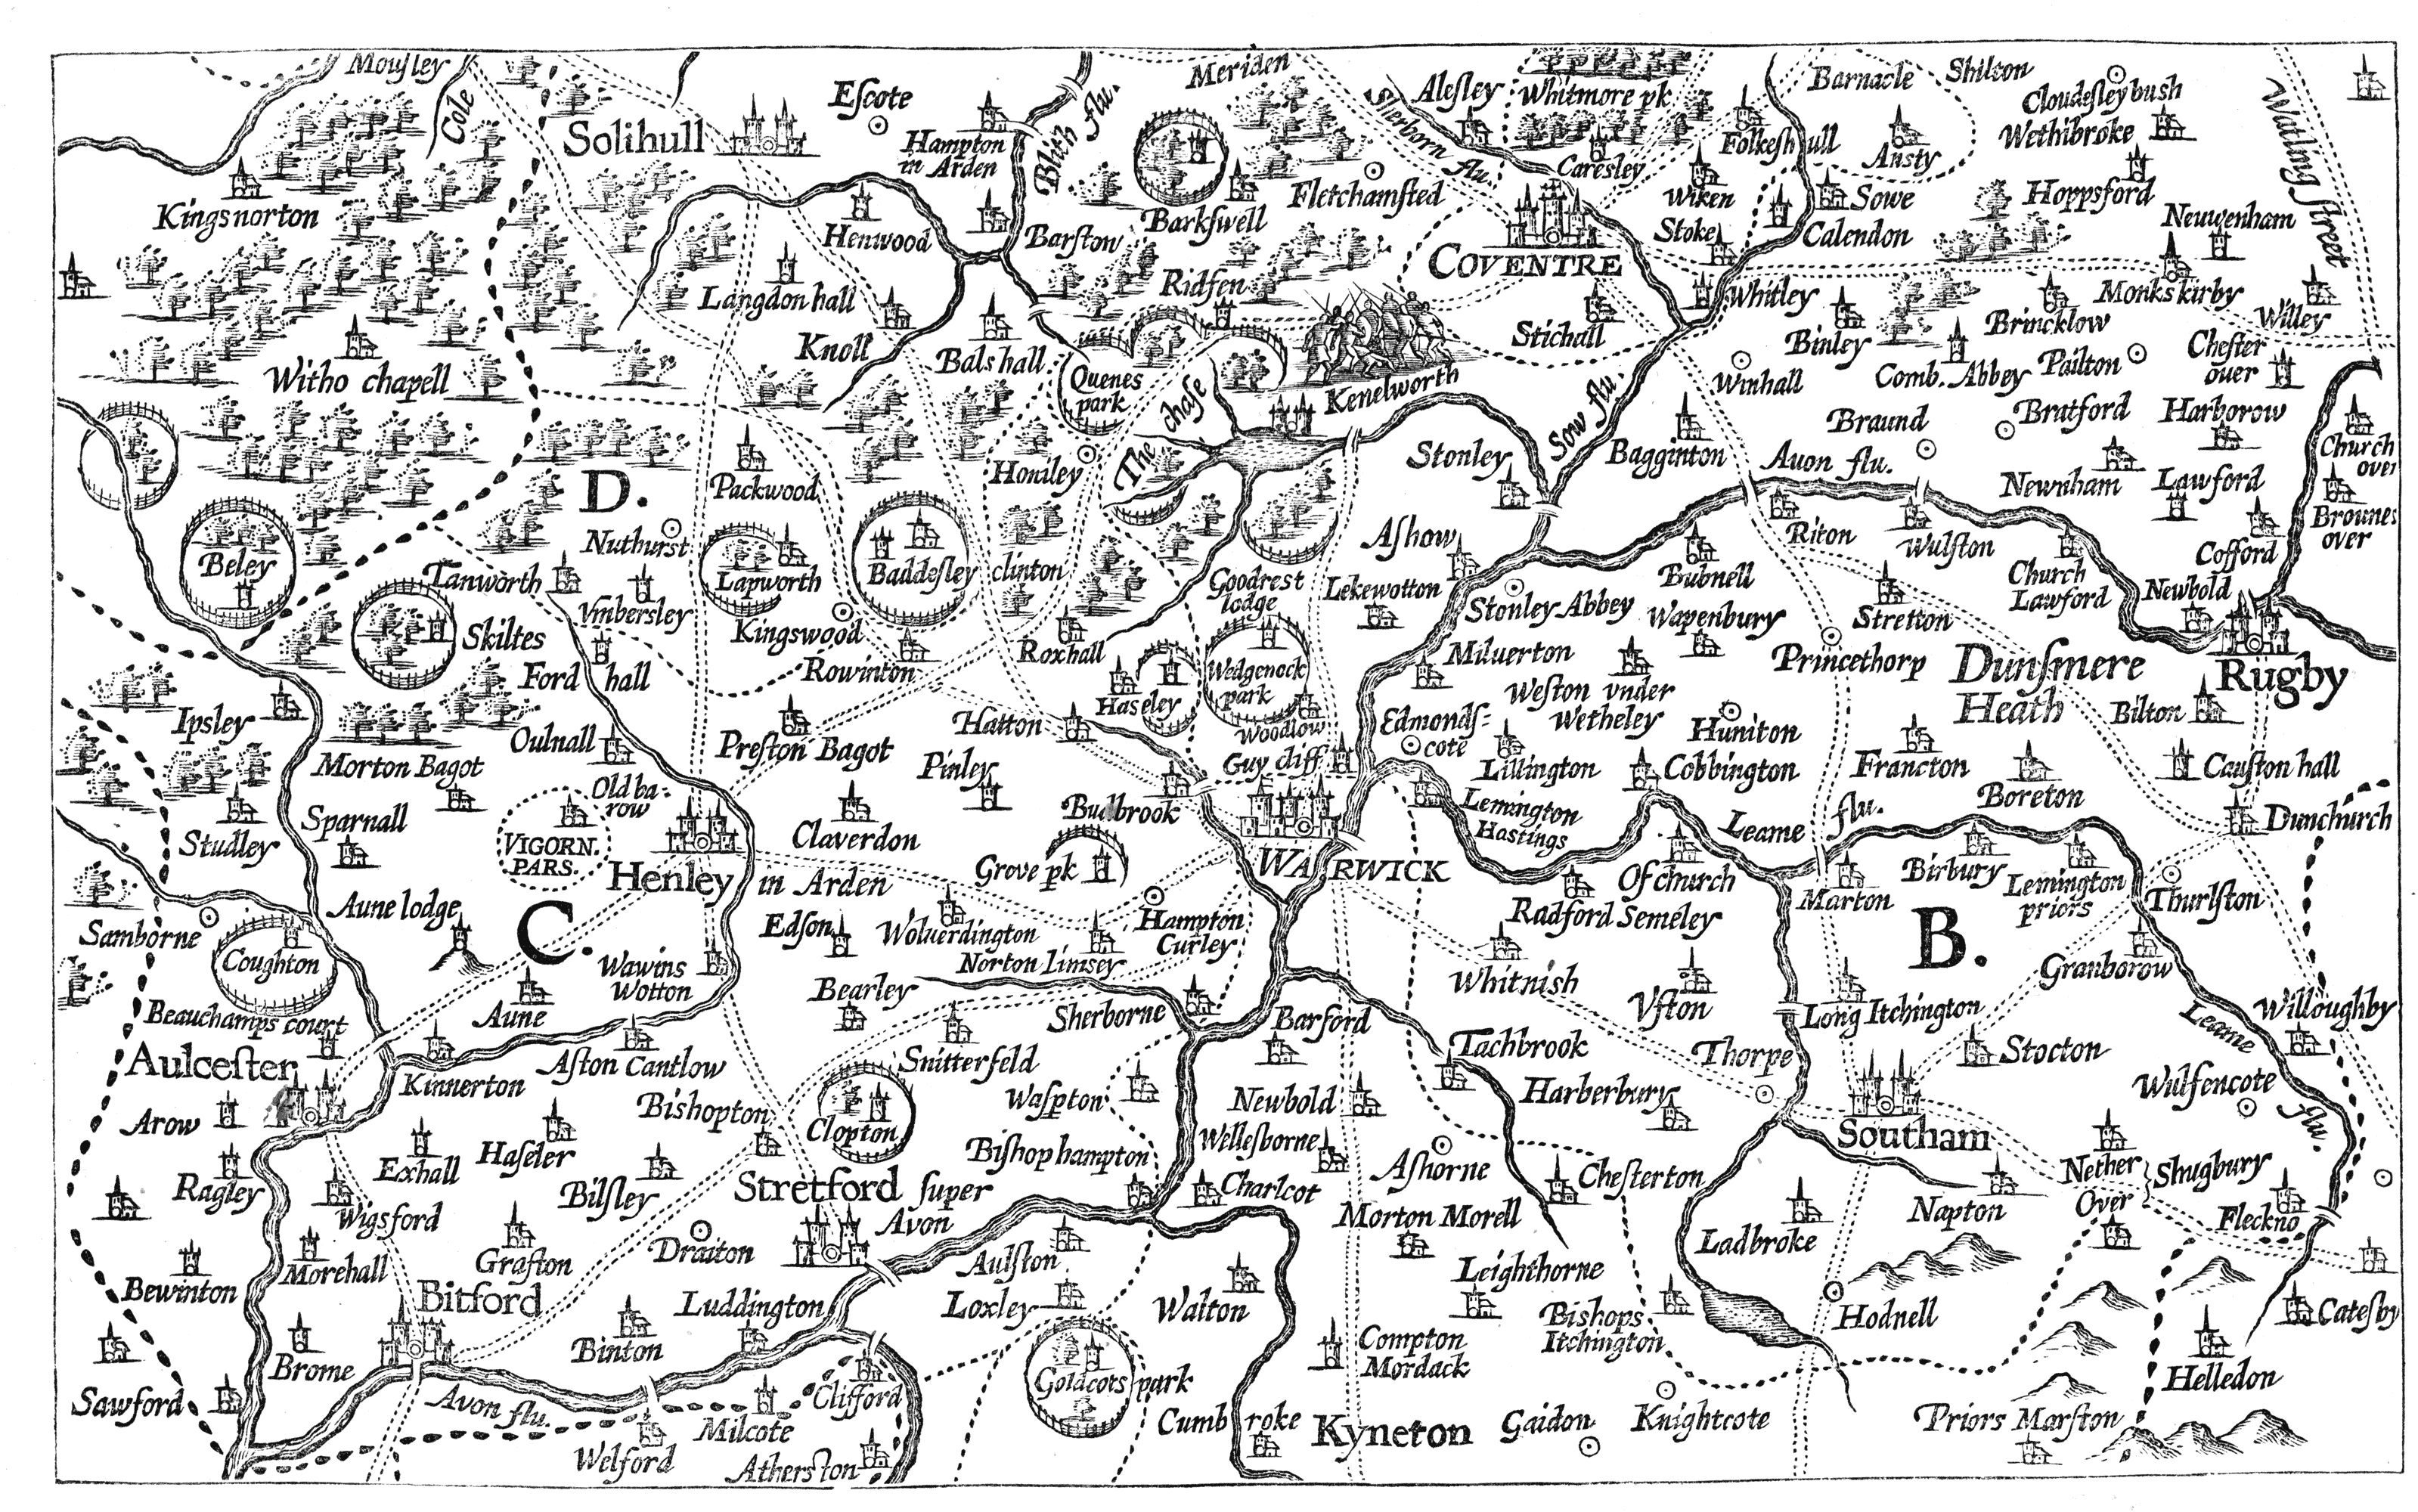 Mouſley
Cole
Solihull
Eſcote
Hampton
in Arden
Blith flu.
Meriden
Sherborn flu.
Aleſley
Whitmore pk
Careſley
Folkeſhull
Barnacle
Shilton
Anſty
Cloudeſleybush
Wethibroke
Watling ſtreet
Kingsnorton
Henwood
Barſton
Barkſwell
Fletchamſted
Wiken
Stoke
Sowe
Calendon
Hoppsford
Neuwenham
COVENTRE
Langdon hall
Knoll
Balshall
Ridfen
Stichall
Whitley
Binley
Brincklow
Monkskirby
Willey
Witho chapell
Quenes
park
The chaſe
Kenelworth
Winhall
Comb. Abbey
Pailton
Cheſter
ouer
Braund
Bratford
Harborow
Church
ouer
D.
Packwood
Honiley
Stonley
Sow flu.
Bagginton
Auon flu.
Newnham
Lawford
Brounes
ouer
Beley
Nuthurst
Tanworth
Vmbersley
Lapworth
Baddeſley clinton
Goodrest
lodge
Aſhow
Lekewotton
Stonley Abbey
Bubnell
Riton
Wulſton
Church
Lawford
Cofford
Newbold
Skiltes
Kingswood
Rowinton
Roxhall
Haseley
Wedgenock
park
Woodlow
Milverton
Wapenbury
Stretton
Princethorp
Dunſmere
Heath
Rugby
Ford hall
Ipsley
Oulnall
Preſton Bagot
Hatton
Pinley
Guy cliff
Edmondſ=
cote
Weſton vnder
Wetheley
Huniton
Bilton
Morton Bagot
Old ba=
row
VIGORN.
PARS.
Sparnall
Studley
Henley in Arden
Claverdon
Budbrook
Grove pk
WARWICK
Lillington
Lemington
Hastings
Cobbington
Francton
Boreton
Cauſton hall
Dunchurch
Leame flu.
Ofchurch
Radford Semeley
Marton
Birbury
Lemington
priors
Thurlſton
Aune lodge
C.
Samborne
Coughton
Wawins
Wotton
Edſon
Woluerdington
Norton Limsey
Hampton
Curley
Whitnish
Vfton
B.
Granborow
Beauchamps court
Aune
Bearley
Sherborne
Barford
Tachbrook
Long Itchington
Leame flu.
Willoughby
Aulceſter
Kinnerton
Aſton Cantlow
Snitterfeld
Thorpe
Stocton
Arow
Bishopton
Clopton
Waſpton
Newbold
Harberbury
Southam
Wulfencote
Exhall
Haſeler
Bilſley
Biſhop hampton
Welleſborne
Aſhorne
Cheſterton
Nether
Over
Shugbury
Ragley
Wigsford
Stretford ſuper
Avon
Charlcot
Morton Morell
Napton
Fleckno
Morehall
Grafton
Draiton
Aulſton
Ladbroke
Bewinton
Bitford
Luddington
Loxley
Walton
Leighthorne
Bishops
Itchington
Hodnell
Cateſby
Brome
Binton
Compton
Mordack
Helledon
Sawford
Avon flu.
Clifford
Goldcots park
Milcote
Welford
Atherſton
Cumb roke
Kyneton
Gaidon
Knightcote
Priors Marſton